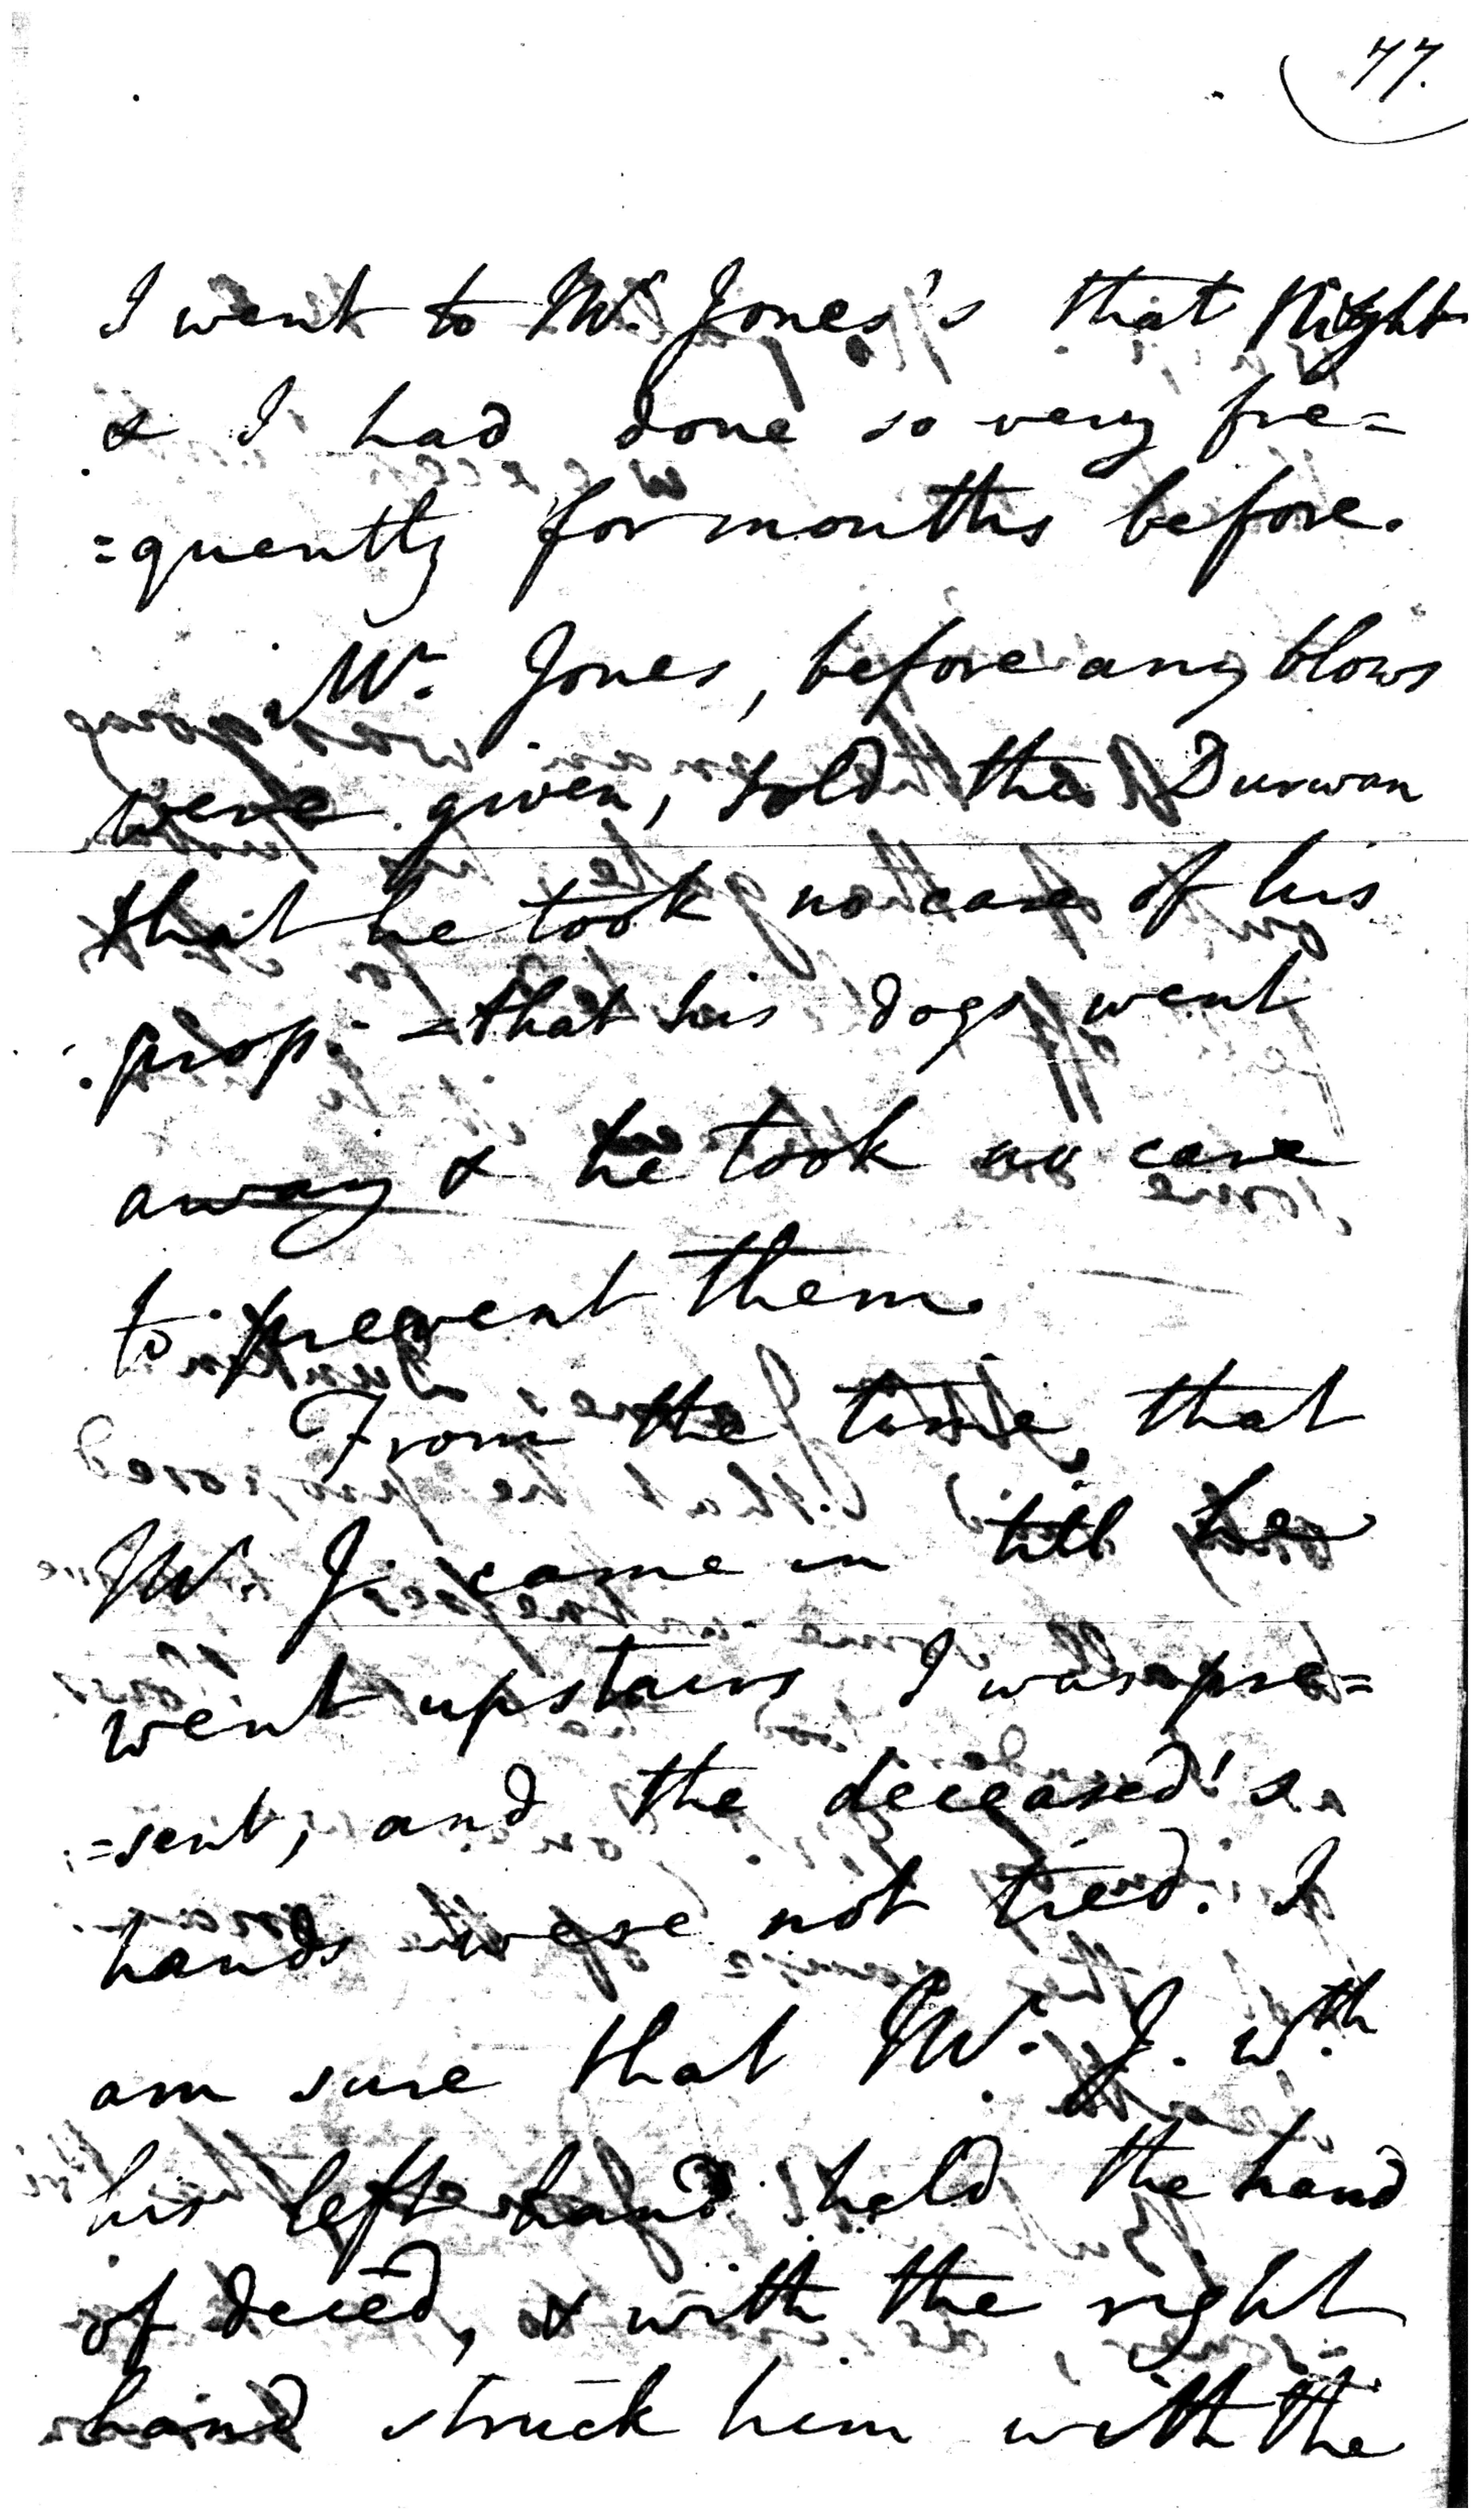 77.
I went to Mr. Jones's that Night
& I had done so very fre=
=quently for months before.
Mr. Jones, before any blows
were given, told the Durwan
that he took no care of his
prop: - that his dogs went
away & he took no care
to prevent them.
From the time that
Mr. J. came in till he
went upstairs I was pre=
=sent, and the deceased's
hands were not tied. I
am sure that Mr. J. wth
his left hand held the hand
of deced, & with the right
hand struck him with the